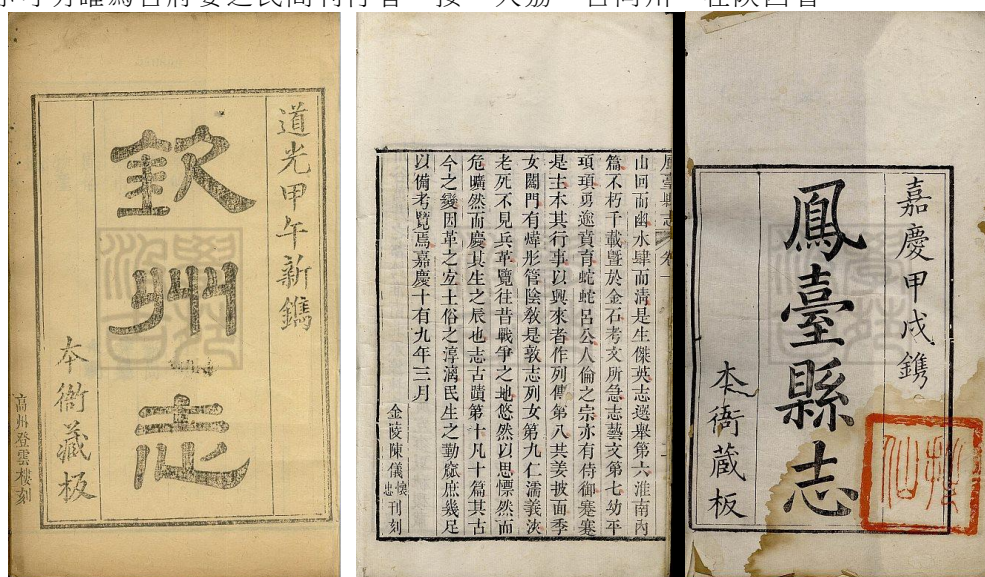 道光甲午新鐫
欽州志
本衙藏板
高州登雲樓刻
山回而幽水肆而清是生傑英志選舉第六淮南內
篇不朽千載暨於金石考文所急志藝文第七幼平
頊頊勇逾賁育蛇蛇呂公人倫之宗亦有侍御蹇蹇
是主本其行事以興來者作列傳第八其姜披面季
女闔門有煒彤管陰敎是敦志列女第九仁濡義浹
老死不見兵革覽往昔戰爭之地悠然以思慄然而
危曠然而慶其生之辰也志古蹟第十凡十篇其古
今之變因革之宜土俗之淳漓民生之勤窳庶幾足
以備考覽焉嘉慶十有九年三月
金陵陳儀懷忠刊刻
嘉慶甲戌鐫
鳳臺縣志
本衙蔵板